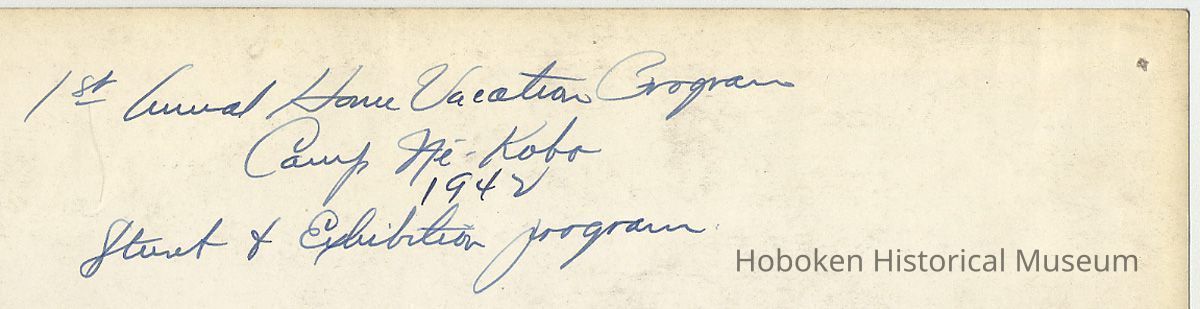 1st Annual Home Vacation Program
Camp Hē-Kobo
1942
Stunt & Exhibition program
Hoboken Historical Museum